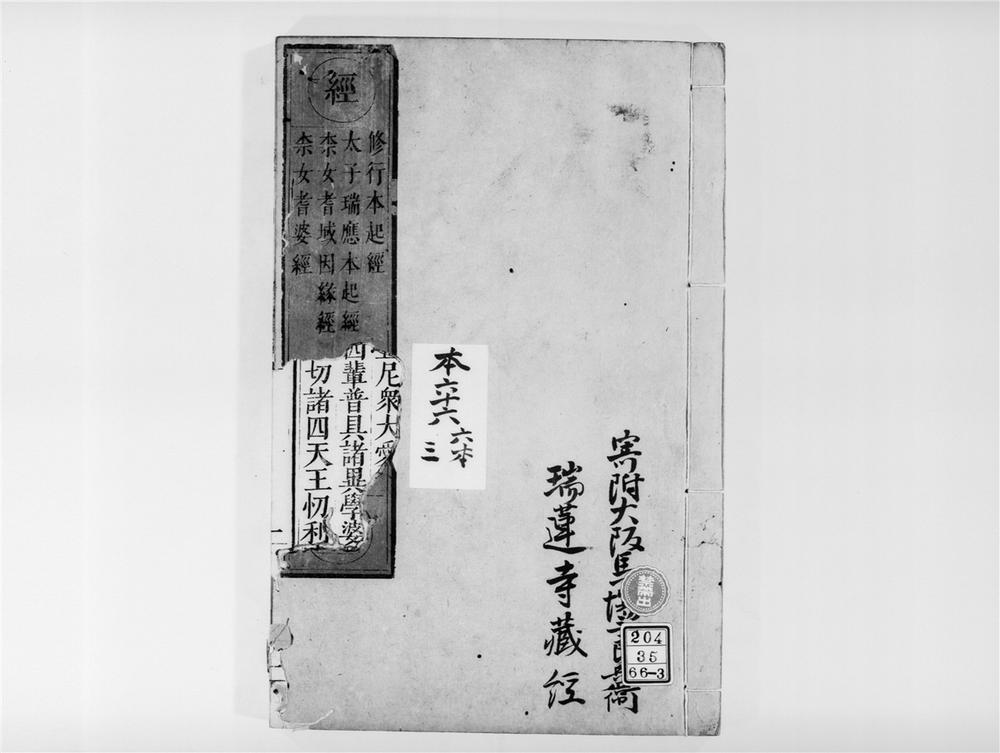 經
修行本起經
太子瑞應本起經
柰女耆域因緣經
柰女耆婆經
尼衆大愛
四輩普具諸異學婆
切諸四天王忉利
本六十六
六本
三
寄附大阪馬
瑞蓮寺藏経
禁帶出
204
35
66-3